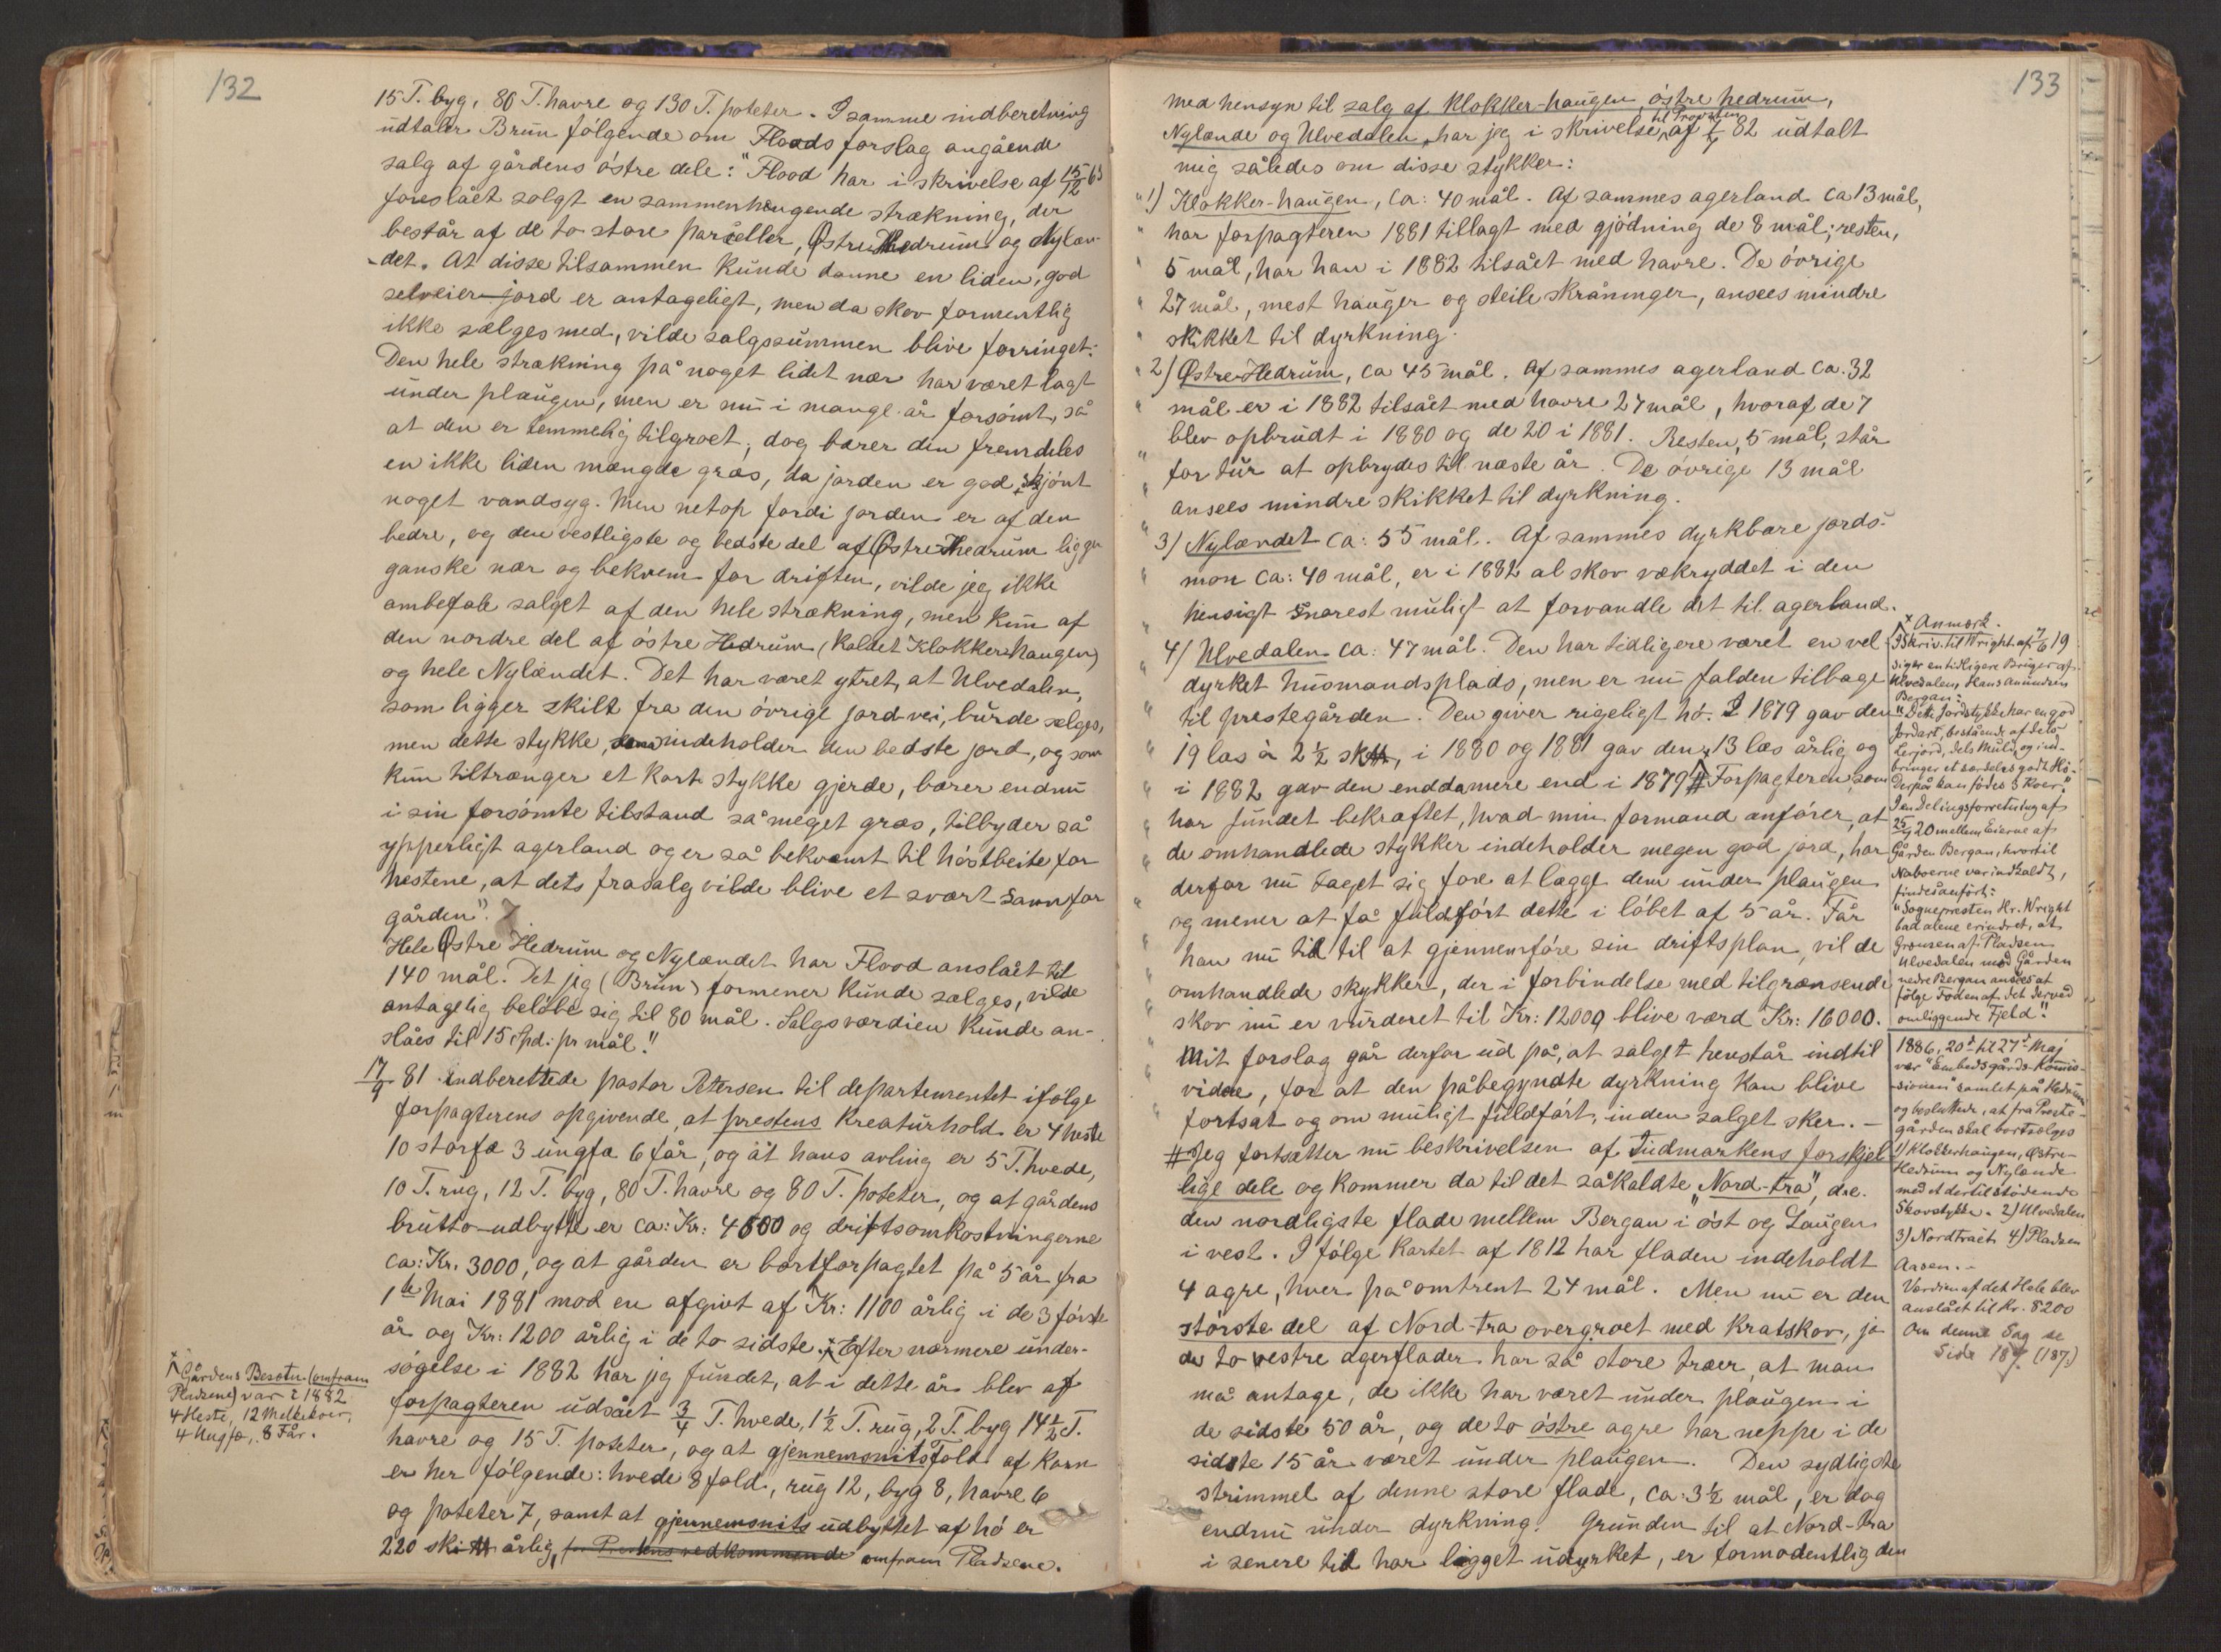 132
15 T. byg, 80 T. havre og 130 T. poteter. I samme indberetning
udtaler Brun følgende om Floods forslag angående
salg af gårdens østre dele: "Flood har i skrivelse af 15/2 63
foreslået solgt en sammenhængende strækning, der
består af de to store parceller, Østre Hedrum og Nylæn-
-det. At disse tilsammen kunde danne en liden, god
selveier-jord er antageligt, men da skov formentlig
ikke sælges med, vilde salgssummen blive forringet.
Den hele strækning på noget lidet nær har været lagt
under plougen, men er nu i mange år forsømt, så
at den er temmelig tilgroet; dog bærer den fremdeles
en ikke liden mængde græs, da jorden er god, skjønt
noget vandsyg. Men netop fordi jorden er af den
bedre, og den vestligste og bedste del af Østre Hedrum ligger
ganske nær og bekvem for driften, vilde jeg ikke
anbefale salget af den hele strækning, men kun af
den nordre del af østre Hedrum (kaldet Klokker-haugen)
og hele Nylændet. Det har været ytret, at Ulvedalen,
som ligger skilt fra den øvrige jord-vei, burde sælges,
men dette stykke, som indeholder den bedste jord, og som
kun tiltrænger et kort stykke gjerde, bærer endnu
i sin forsømte tilstand så meget græs, tilbyder så
ypperligt agerland og er så bekvemt til høstbeite for
hestene, at dets frasalg vilde blive et svært savn for
gården".
Hele Østre Hedrum og Nylændet har Flood anslået til
140 mål. Det jeg (Brun) formener kunde sælges, vilde
antagelig beløbe sig til 80 mål. Salgsværdien kunde an-
slåes til 15 Spd: pr mål."
17/9 81 indberettede pastor Petersen til departementet ifølge
forpagterens opgivende, at prestens kreaturhold er 4 heste
10 storfæ 3 ungfæ 6 får, og at hans avling er 5 T. hvede,
10 T. rug, 12 T. byg, 80 T. havre og 80 T. poteter, og at gårdens
brutto-udbytte er ca: Kr: 4500 og driftsomkostningerne
ca: Kr. 3000, og at gården er bortforpagtet på 5 år fra
1te Mai 1881 mod en afgivt af Kr: 1100 årlig i de 3 første
år og Kr: 1200 årlig i de to sidste. x Efter nærmere under-
søgelse i 1882 har jeg fundet, at i dette år blev af
forpagteren udsået 3/4 T. hvede, 1 1/2 T. rug, 2 T. byg 14 1/2 T.
havre og 15 T. poteter, og at gjennemsnitsfold af korn
er her følgende: hvede 8 fold, rug 12, byg 8, havre 6
og poteter 7, samt at gjennemsnits udbyttet af hø er
220 ski℔ årlig, for Prestens vedkommende omfram Pladsene.
x Gårdens Besætn. (omfram
Pladsene) var i 1882
4 Heste, 12 Melkekoer,
4 Ungfæ, 8 Får.
133
med hensyn til salg af Klokker-haugen, østre hedrum,
Nylænde og Ulvedalen, har jeg i skrivelse til Provsten af 1/9 82 udtalt
mig således om disse stykker:
"1) Klokker-haugen, ca: 40 mål. Af sammes agerland ca 13 mål,
" har forpagteren 1881 tillagt med gjødning de 8 mål; resten,
" 5 mål, har han i 1882 tilsået med havre. De øvrige
" 27 mål, mest hauger og steile skråninger, ansees mindre
" skikket til dyrkning.
" 2) Østre-Hedrum, ca 45 mål. Af sammes agerland ca. 32
" mål er i 1882 tilsået med havre 27 mål, hvoraf de 7
" blev opbrudt i 1880 og de 20 i 1881. Resten, 5 mål, står
" for tur at opbrydes til næste år. De øvrige 13 mål
" ansees mindre skikket til dyrkning.
" 3) Nylændet ca: 55 mål. Af sammes dyrkbare jords-
" mon ca: 40 mål, er i 1882 al skov vækryddet i den
" hensigt snarest muligt at forvandle det til agerland.
" 4) Ulvedalen ca: 47 mål. Den har tidligere været en vel
" dyrket husmandsplads, men er nu falden tilbage
" til prestegården. Den giver rigeligt hø. I 1879 gav den
" 19 læs à 2 1/2 sk℔, i 1880 og 1881 gav den 13 læs årlig og
" i 1882 gav den enddamere end i 1879 # Forpagteren, som
" har fundet bekræftet, hvad min formand anfører, at
" de omhandlede stykker indeholder megen god jord, har
" derfor nu taget sig fore at lægge dem under plaugen
" og mener at få fuldført dette i løbet af 5 år. Får
" han nu tid til at gjennemføre sin driftsplan, vil de
" omhandlede stykker, der i forbindelse med tilgrænsende
" skov nu er vurderet til Kr: 12000 blive værd Kr: 16000.
" Mit forslag går derfor ud på, at salget henstår indtil
" videre, for at den påbegyndte dyrkning kan blive
" fortsat og om muligt fuldført, inden salget sker. –
# Jeg fortsætter nu beskrivelsen af Indmarkens forskjel-
lige dele og kommer da til det såkaldte "Nord-tra", d.e.
den nordligste flade mellem Bergan i øst og Laugen
i vest. I følge kartet af 1812 har fladen indeholdt
4 agre, hver på omtrent 24 mål. Men nu er den
største del af Nord-tra overgroet med kratskov, ja
de to vestre agerflader har så store træer, at man
må antage, de ikke har været under plaugen i
de sidste 50 år, og de to østre agre har neppe i de
sidste 15 år været under plaugen. Den sydligste
strimmel af denne store flade, ca: 3 1/2 mål, er dog
endnu under dyrkning. Grunden til at Nord-tra
i senere tid har ligget udyrket, er formodentlig den
x Anmærk.
I Skriv. til Wright af 7/6 19
siger en tidligere Bruger af
Ulvedalen, Hans Amundsen
Bergan:
"Dette Jordstykke har en god
Jordart, bestående af dels
Lerjord, dels Muld, og ind-
bringer et særdeles godt Hø.
Derpå kan fødes 3 Koer."
I en Delingsforretning af
25/9 20 mellem Eierne af
Gården Bergan, hvortil
Naboerne var indkaldt,
findes anført:
"Sognepresten Hr. Wright
bad alene erindret, at
Grænsen af Pladsen
Ulvedalen mod Gården
nedre Bergan ansees at
følge Foden af det derved
omliggende Fjeld."
1886, 20de til 27de Maj
var "Embedsgårds-Komis-
-sionen" samlet på Hedrum
og besluttede, at fra Preste-
gården skal bortsælges
1) Klokkerhaugen, Østre-
Hedrum og Nylænde
med et dertil stødende
Skovstykke. 2) Ulvedalen
3) Nordtraet 4) Pladsen
Aasen. –
Værdien af det Hele blev
anslået til Kr. 8200
Om denne Sag se
Side 187. (187.)